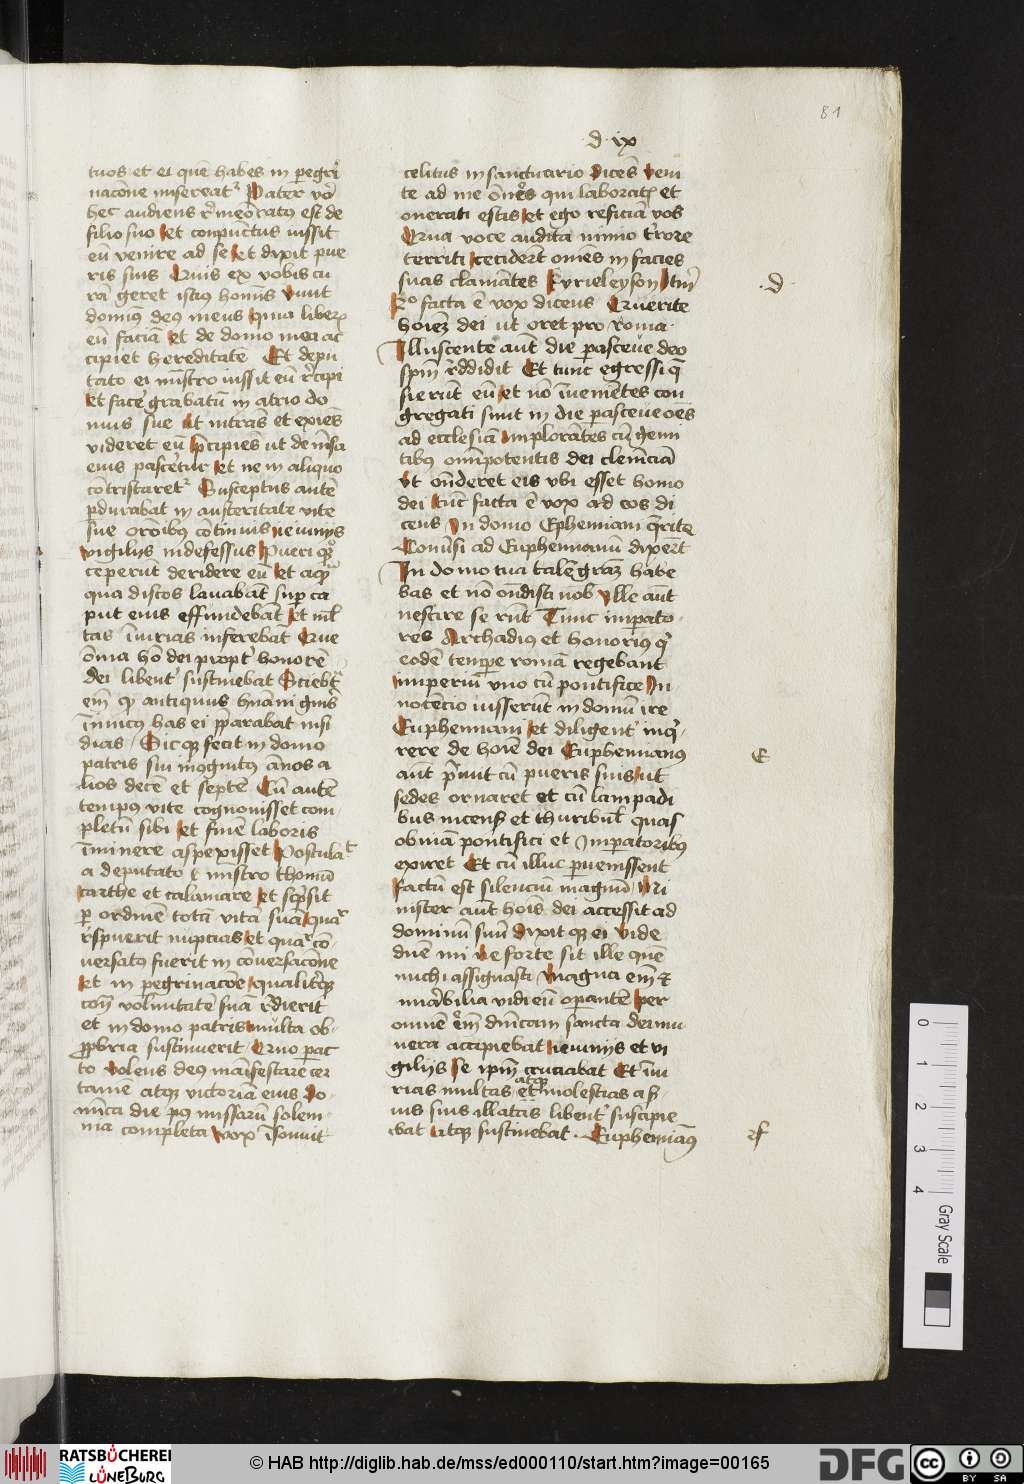 81
d ix
tuos et ei quē habes in peregri
nacōne misereatr Pater vo
hec audiens rememoratꝰ est de
filio suo et compūctus iussit
eū venire ad se et dixit pue
ris suis Quis ex vobis cu
rā geret istiꝰ hominis viuit
dominꝰ deꝰ meus quia liberꝫ
eū faciā et de domo mea ac
cipiet hereditate Et depu
tato ei mīstro iussit eū recipi
et facē grabatū in atrio do
mus sue ut intrās et exiēs
videret eū p̄cipiens ut de mēsa
eius pascētur et ne in aliquo
cōtristaretr Susceptus autē
ꝑdurabat in austeritate vite
sue orōibꝰ cōtinuis ieiuniis
vigiliis indefessus Pueri qꝫ
ceperūt deridere eū et aqua
qua discos lauabāt suꝑ ca
put eius effundebāt et mul
tas iniurias inferebāt Que
ōmia hō dei propt honorē
dei libent sustinebat Sciebat
em̄ qꝫ antiquus humani gn̄is
inimicꝰ has ei pꝑarabat insi
dias Sicqꝫ fecit in domo
patris sui incognitꝰ ānos a
lios decē et septē Cū autē
tempꝰ vite cognouisset com
pletū sibi et finē laboris
īminere aspexisset Postulat
a deputato s mīstro thomū
carthe et calamare et scripsit
ꝑ ordinē totā vitā suā quar
respuerit nupcias et quar cō
uersatꝰ fuerit in cōuersacōne
et in peregrinacōe qualiterqꝫ
cont voluntatē suā redierit
et in domo patris multa ob
probria sustinuerit Quo pac
to volens deꝰ manifestare cer
tamē atqꝫ victoriā eius Do
minica die pꝰ missarū solem
nia completa vox insonuit
celitus in sanctuario dicēs veni
te ad me ōnes qui laboratis et
onerati estis et ego reficiā vos
Qua voce audita nimio terrore
territi ceciderūt omēs in facies
suas clamātes Kyrieleyson Iterum
scdo facta ē vox dicens Querite
hoīem dei ut oret pro roma
Illuscente autē die parasceue deo
spm reddidit Et tunc egressi que
sierūt eū et nō inueniētes con
gregati sunt in die parasceue oēs
ad ecclesiā implorātes cū gemi
tibꝰ omīpotentis dei clemēciā
vt ostenderet eis ubi esset homo
dei tūc facta ē vox ad eos di
cens In domo Ephemiani querite
Conuersi ad Euphemianū dixerūt
In domo tua talē gratiam habe
bas et nō ondisti nob ylle autē
nescire se rūt Tunc imperato
res Archadiꝰ et honoriꝰ qui
eodē tempore romā regebant
imperiū vno cū pontifice In
nocēcio iusserūt in domū ire
Euphemiani et diligent inqui
rere de hoīē dei Euphemianus
autē preiuit cū pueris suis ut
sedes ornaret et cū lampadi
bus incensis et thuribul quasi
obuiā pontifici et imperatoribꝰ
exiret Et cū illuc ꝑuenissent
factū est silenciū magnū Mi
nister autē hoīs dei accessit ad
dominū suū dixit qꝫ ei vide
dne mi ne forte sit ille quē
michi assignasti magna em̄ et
mirabilia vidi eū operantē per
omnē em̄ dominicam sancta dei mu
nera accipiebat ieiuniis et vi
giliis se ipm cruciabat Et iniu
rias multas atqꝫ et molestias a ser
uis suis illatas libent suscipie
bat atqꝫ sustinebat. Euphemianꝰ
.d.
E
f
0 1 2 3 4
Gray Scale
RATSBÜCHEREI LÜNEBURG
© HAB http://diglib.hab.de/mss/ed000110/start.htm?image=00165
DFG
cc BY SA